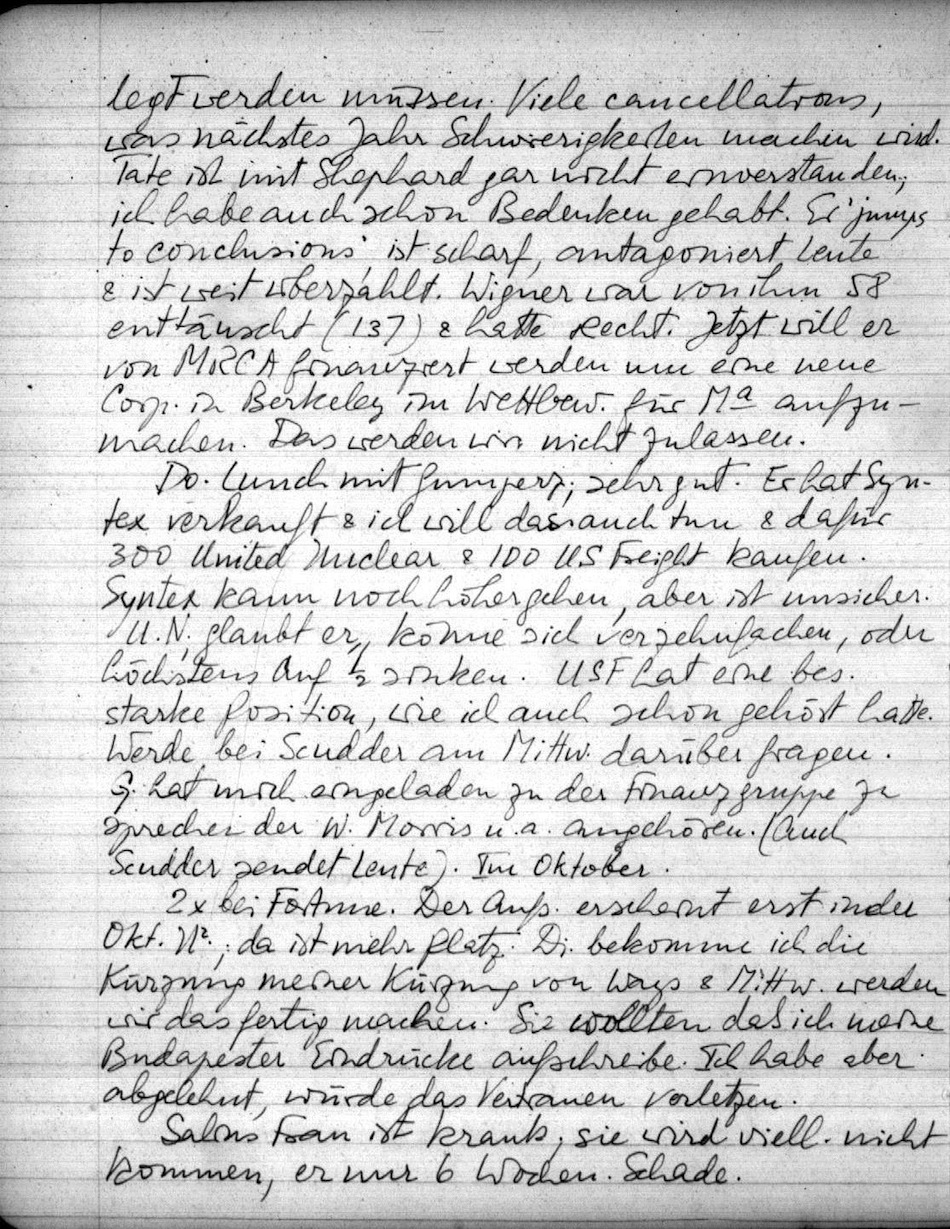 legt werden müssen. Viele cancellations,
was nächstes Jahr Schwierigkeiten machen wird.
Tate ist mit Shephard gar nicht einverstanden;
ich habe auch schon Bedenken gehabt. Er 'jumps
to conclusions' ist scharf, antagoniert Leute
& ist weit überzahlt. Wigner war von ihm 58
enttäuscht (137) & hatte Recht. Jetzt will er
von MRCA finanziert werden um eine neue
Corp. in Berkeley im Wettbew. für Ma aufzu-
machen. Das werden wir nicht zulassen.
Do. Lunch mit Gumperz; sehr gut. Er hat Syn-
tex verkauft & ich will das auch tun & dafür
300 United Nuclear & 100 US Freight kaufen.
Syntex kann noch höher gehen, aber ist unsicher.
U.N. glaubt er, könne sich verzehnfachen, oder
höchstens auf ½ sinken. USF hat eine bes.
starke Position, wie ich auch schon gehört hatte.
Werde bei Scudder am Mittw. darüber fragen.
G. hat mich eingeladen zu der Finanzgruppe zu
sprechen der W. Morris u.a. angehören. (Auch
Scudder sendet Leute). Im Oktober.
2x bei Fortune. Der Aufs. erscheint erst in der
Okt. No.; da ist mehr Platz. Di. bekomme ich die
Kürzung meiner Kürzung von Ways & Mittw. werden
wir das fertig machen. Sie wollten daß ich meine
Budapester Eindrücke aufschreibe. Ich habe aber
abgelehnt, würde das Vertrauen verletzen.
Salins Frau ist krank; sie wird viell. nicht
kommen, er nur 6 Wochen. Schade.